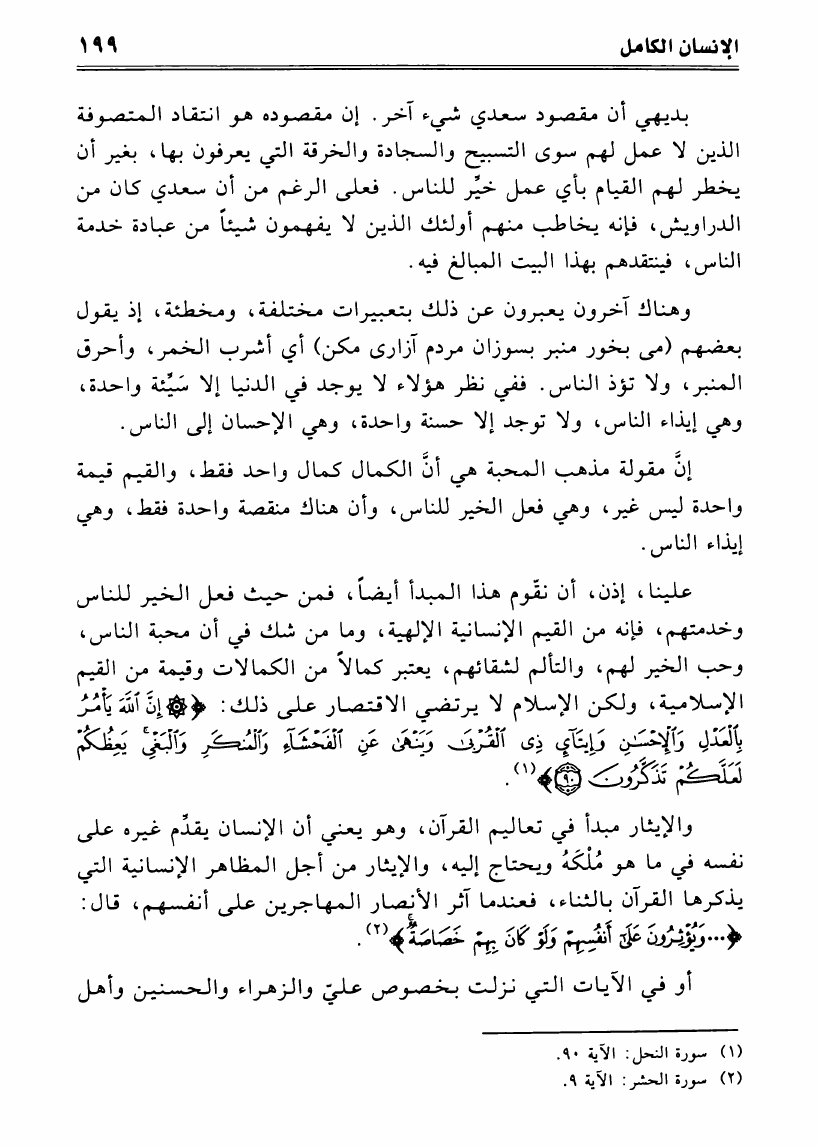 الإنسان الكامل ١٩٩
بديهي أن مقصود سعدي شيء آخر. إن مقصوده هو انتقاد المتصوفة
الذين لا عمل لهم سوى التسبيح والسجادة والخرقة التي يعرفون بها، بغير أن
يخطر لهم القيام بأي عمل خيِّر للناس. فعلى الرغم من أن سعدي كان من
الدراويش، فإنه يخاطب منهم أولئك الذين لا يفهمون شيئاً من عبادة خدمة
الناس، فينتقدهم بهذا البيت المبالغ فيه.
وهناك آخرون يعبرون عن ذلك بتعبيرات مختلفة، ومخطئة، إذ يقول
بعضهم (می بخور منبر بسوزان مردم آزاری مکن) أي أشرب الخمر، وأحرق
المنبر، ولا تؤذ الناس. ففي نظر هؤلاء لا يوجد في الدنيا إلا سَيِّئة واحدة،
وهي إيذاء الناس، ولا توجد إلا حسنة واحدة، وهي الإحسان إلى الناس.
إنَّ مقولة مذهب المحبة هي أنَّ الكمال كمال واحد فقط، والقيم قيمة
واحدة ليس غير، وهي فعل الخير للناس، وأن هناك منقصة واحدة فقط، وهي
إيذاء الناس.
علينا، إذن، أن نقّوم هذا المبدأ أيضاً، فمن حيث فعل الخير للناس
وخدمتهم، فإنه من القيم الإنسانية الإلهية، وما من شك في أن محبة الناس،
وحب الخير لهم، والتألم لشقائهم، يعتبر كمالاً من الكمالات وقيمة من القيم
الإسلامية، ولكن الإسلام لا يرتضي الاقتصار على ذلك: ﴿۞ إِنَّ ٱللَّهَ يَأۡمُرُ
بِٱلۡعَدۡلِ وَٱلۡإِحۡسَٰنِ وَإِيتَآيِٕ ذِي ٱلۡقُرۡبَىٰ وَيَنۡهَىٰ عَنِ ٱلۡفَحۡشَآءِ وَٱلۡمُنكَرِ وَٱلۡبَغۡيِۚ يَعِظُكُمۡ
لَعَلَّكُمۡ تَذَكَّرُونَ ۝٩٠﴾(١).
والإيثار مبدأ في تعاليم القرآن، وهو يعني أن الإنسان يقدِّم غيره على
نفسه في ما هو مُلْكَهُ ويحتاج إليه، والإيثار من أجل المظاهر الإنسانية التي
يذكرها القرآن بالثناء، فعندما آثر الأنصار المهاجرين على أنفسهم، قال:
﴿...وَيُؤۡثِرُونَ عَلَىٰٓ أَنفُسِهِمۡ وَلَوۡ كَانَ بِهِمۡ خَصَاصَةٞۚ﴾(٢).
أو في الآيات التي نزلت بخصوص عليّ والزهراء والحسنين وأهل
(١) سورة النحل: الآية ٩٠.
(٢) سورة الحشر: الآية ٩.